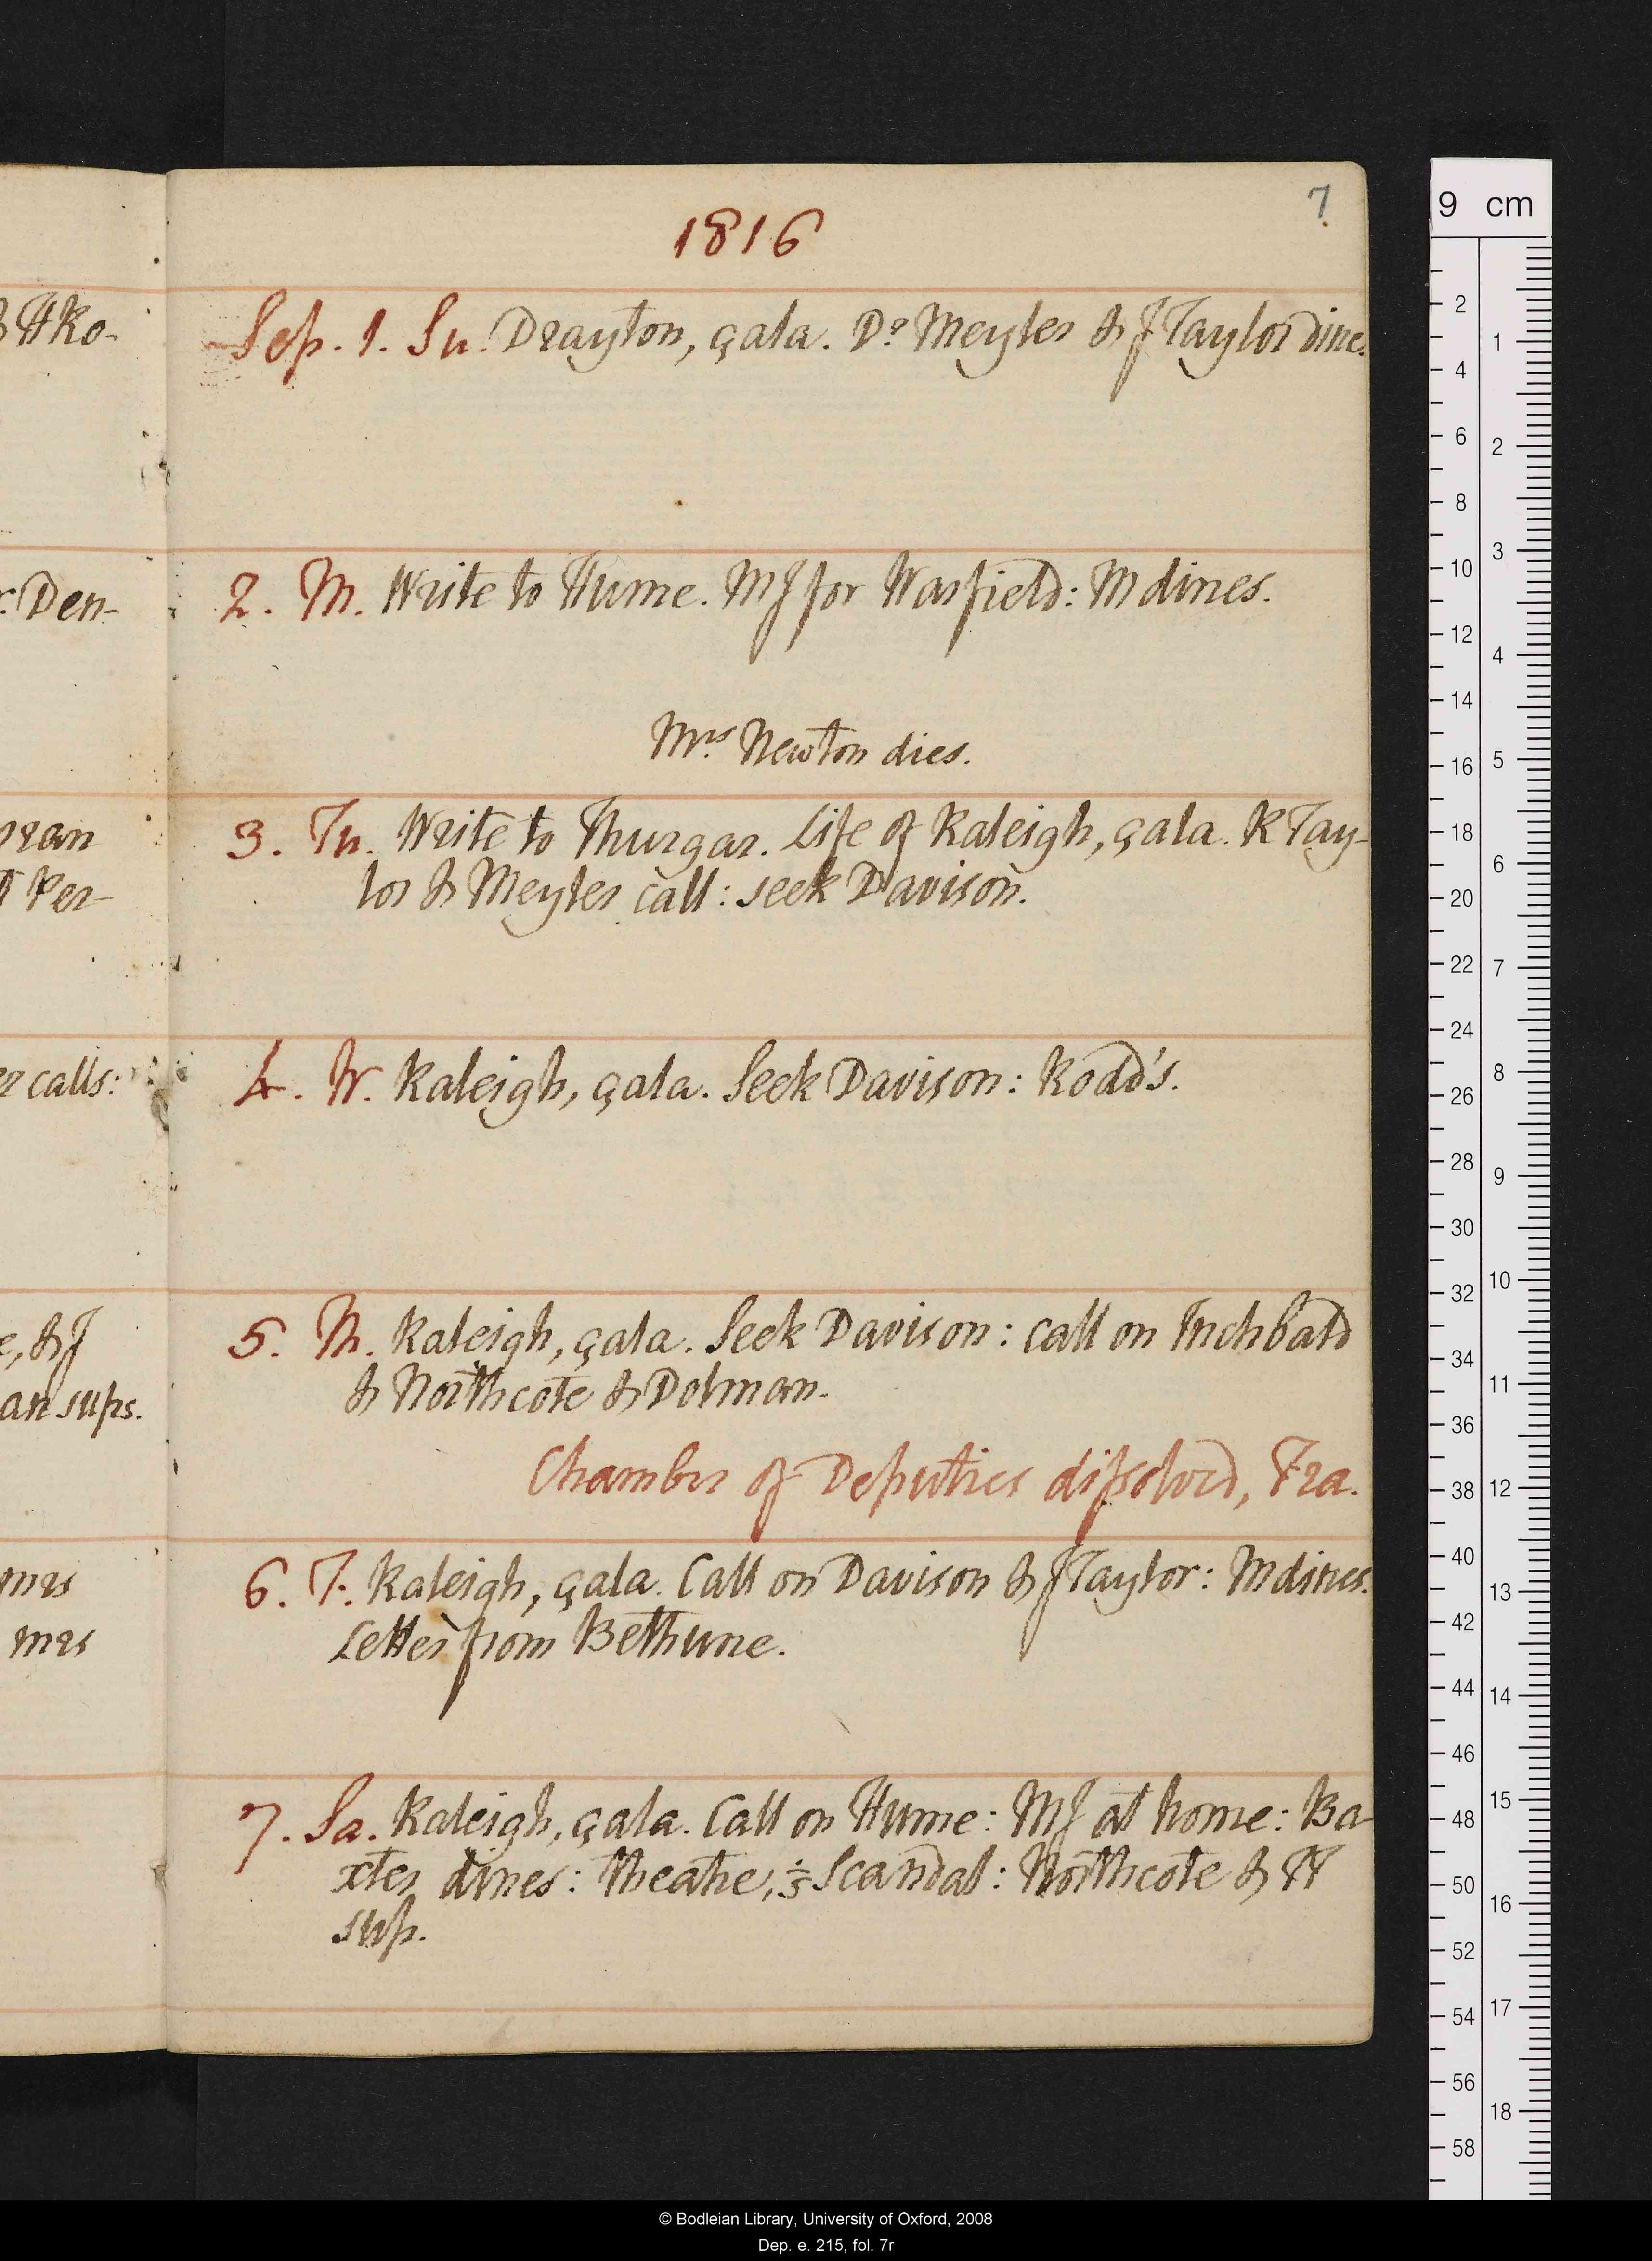 7
1816
& H Ro-
Sep. 1. Su. Drayton, çala. Dr Meyler & J Taylor dine.
r: Den-
2. M. Write to Hume. MJ for Warfield: M dines.
Mrs Newton dies.
3. Tu. Write to Thurgar. Life of Raleigh, çala. R Tay-
lor & Meyler call: seek Davison.
ran
Per-
4. W. Raleigh, çala. Seek Davison: Rodd's.
er calls:
5. Th. Raleigh, çala. Seek Davison: call on Inchbald
& Northcote & Dolman.
e, & J
an sups.
Chamber of Deputies dissolved, Fra.
6. F. Raleigh, çala. Call on Davison & J Taylor: M dines.
Letter from Bethune.
mrs
mrs
7. Sa. Raleigh, çala. Call on Hume: MJ at home: Ba-
xter dines: theatre, Scandal: Northcote & H
sup.
9 cm
2
4
6
8
10
12
14
16
18
20
22
24
26
28
30
32
34
36
38
40
42
44
46
48
50
52
54
56
58
1
2
3
4
5
6
7
8
9
10
11
12
13
14
15
16
17
18
© Bodleian Library, University of Oxford, 2008
Dep. e. 215, fol. 7r